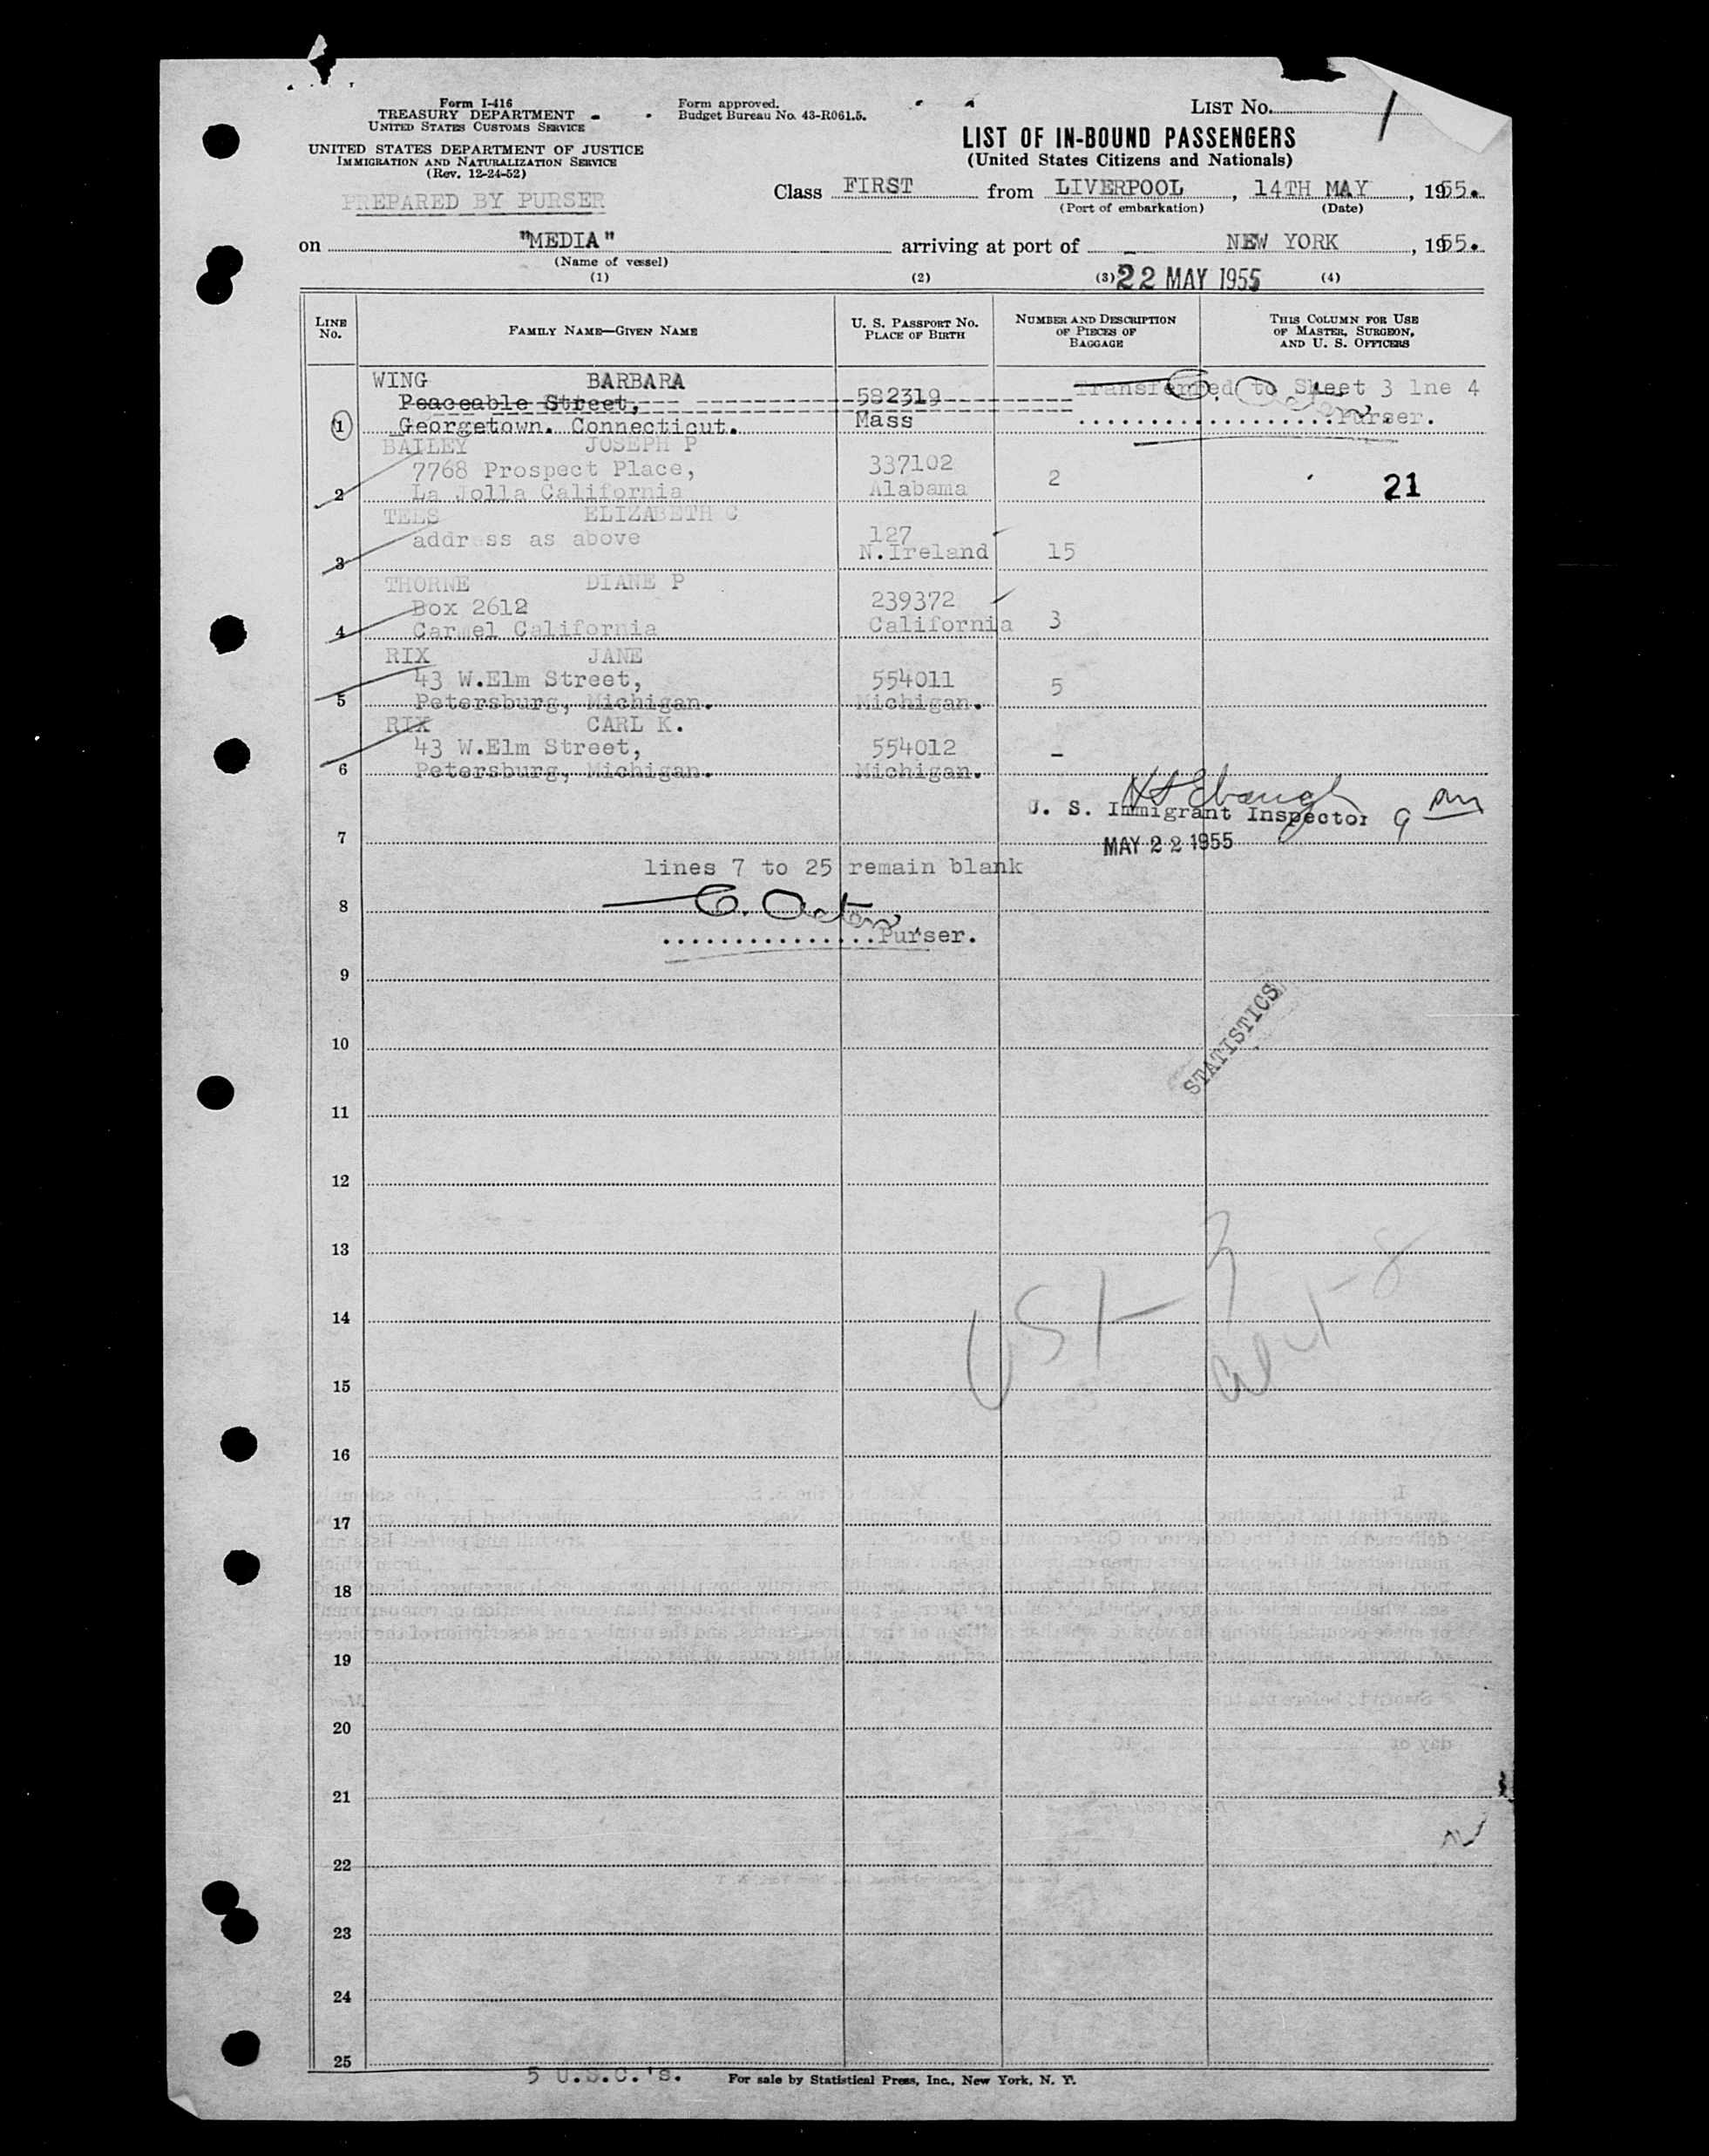 Form I-416
TREASURY DEPARTMENT
UNITED STATES CUSTOMS SERVICE
UNITED STATES DEPARTMENT OF JUSTICE
IMMIGRATION AND NATURALIZATION SERVICE
(Rev. 12-24-52)
PREPARED BY PURSER
Form approved.
Budget Bureau No. 43-R061.5.
LIST NO. 1
LIST OF IN-BOUND PASSENGERS
(United States Citizens and Nationals)
Class FIRST from LIVERPOOL, 14TH MAY, 1955.
(Port of embarkation) (Date)
on "MEDIA" arriving at port of NEW YORK, 1955.
(Name of vessel)
(1) (2) (3) 22 MAY 1955 (4)
LINE No. FAMILY NAME—GIVEN NAME U. S. PASSPORT NO. PLACE OF BIRTH NUMBER AND DESCRIPTION OF PIECES OF BAGGAGE THIS COLUMN FOR USE OF MASTER, SURGEON, AND U. S. OFFICERS
WING BARBARA Transferred to Sheet 3 lne 4
Peaceable Street, 582319
1 Georgetown. Connecticut. Mass Purser.
BAILEY JOSEPH P
7768 Prospect Place, 337102 2
2 La Jolla California Alabama 21
TELS ELIZABETH C
address as above 127
3 N.Ireland 15
THORNE DIANE P
Box 2612 239372
4 Carmel California California 3
RIX JANE
43 W.Elm Street, 554011 5
5 Petersburg, Michigan. Michigan.
RIX CARL K.
43 W.Elm Street, 554012 -
6 Petersburg, Michigan. Michigan.
U. S. Immigrant Inspector
7 MAY 22 1955
lines 7 to 25 remain blank
8
Purser.
9
STATISTICS
10
11
12
13
14
15
16
17
18
19
20
21
22
23
24
25
5 U.S.C.'s. For sale by Statistical Press, Inc., New York, N. Y.